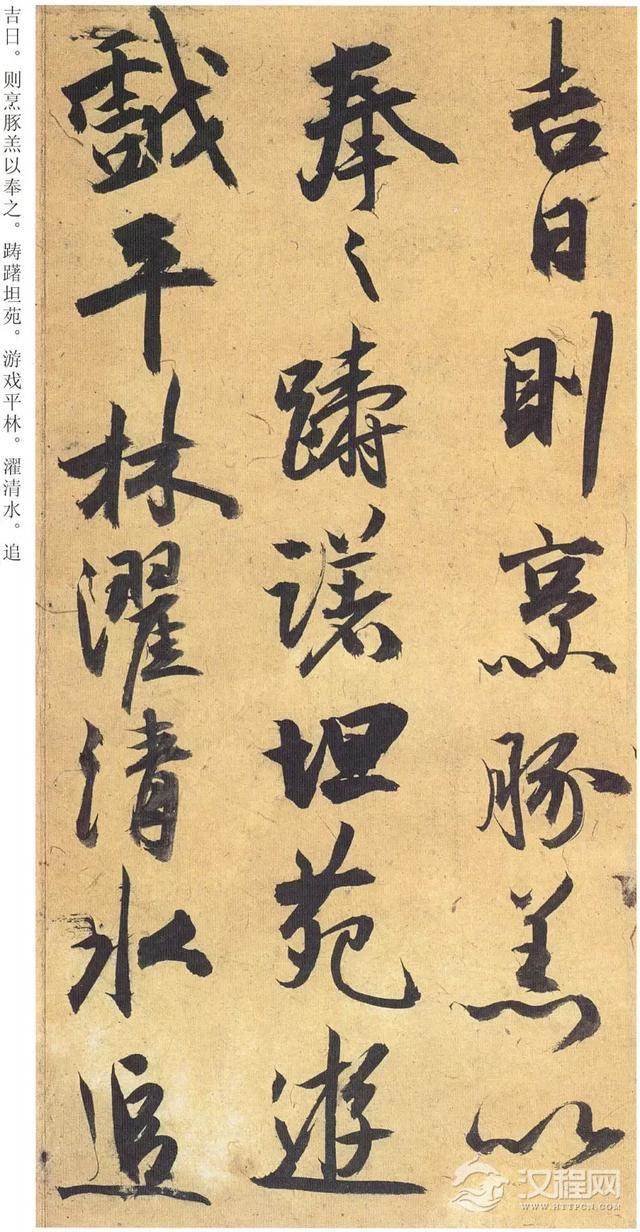 吉日則烹豚羔以
奉之躊躇坦苑遊
戲平林濯清水追
吉日。则烹豚羔以奉之。踌躇坦苑。游戏平林。濯清水。追
汉程网
WWW.HTTPCN.COM